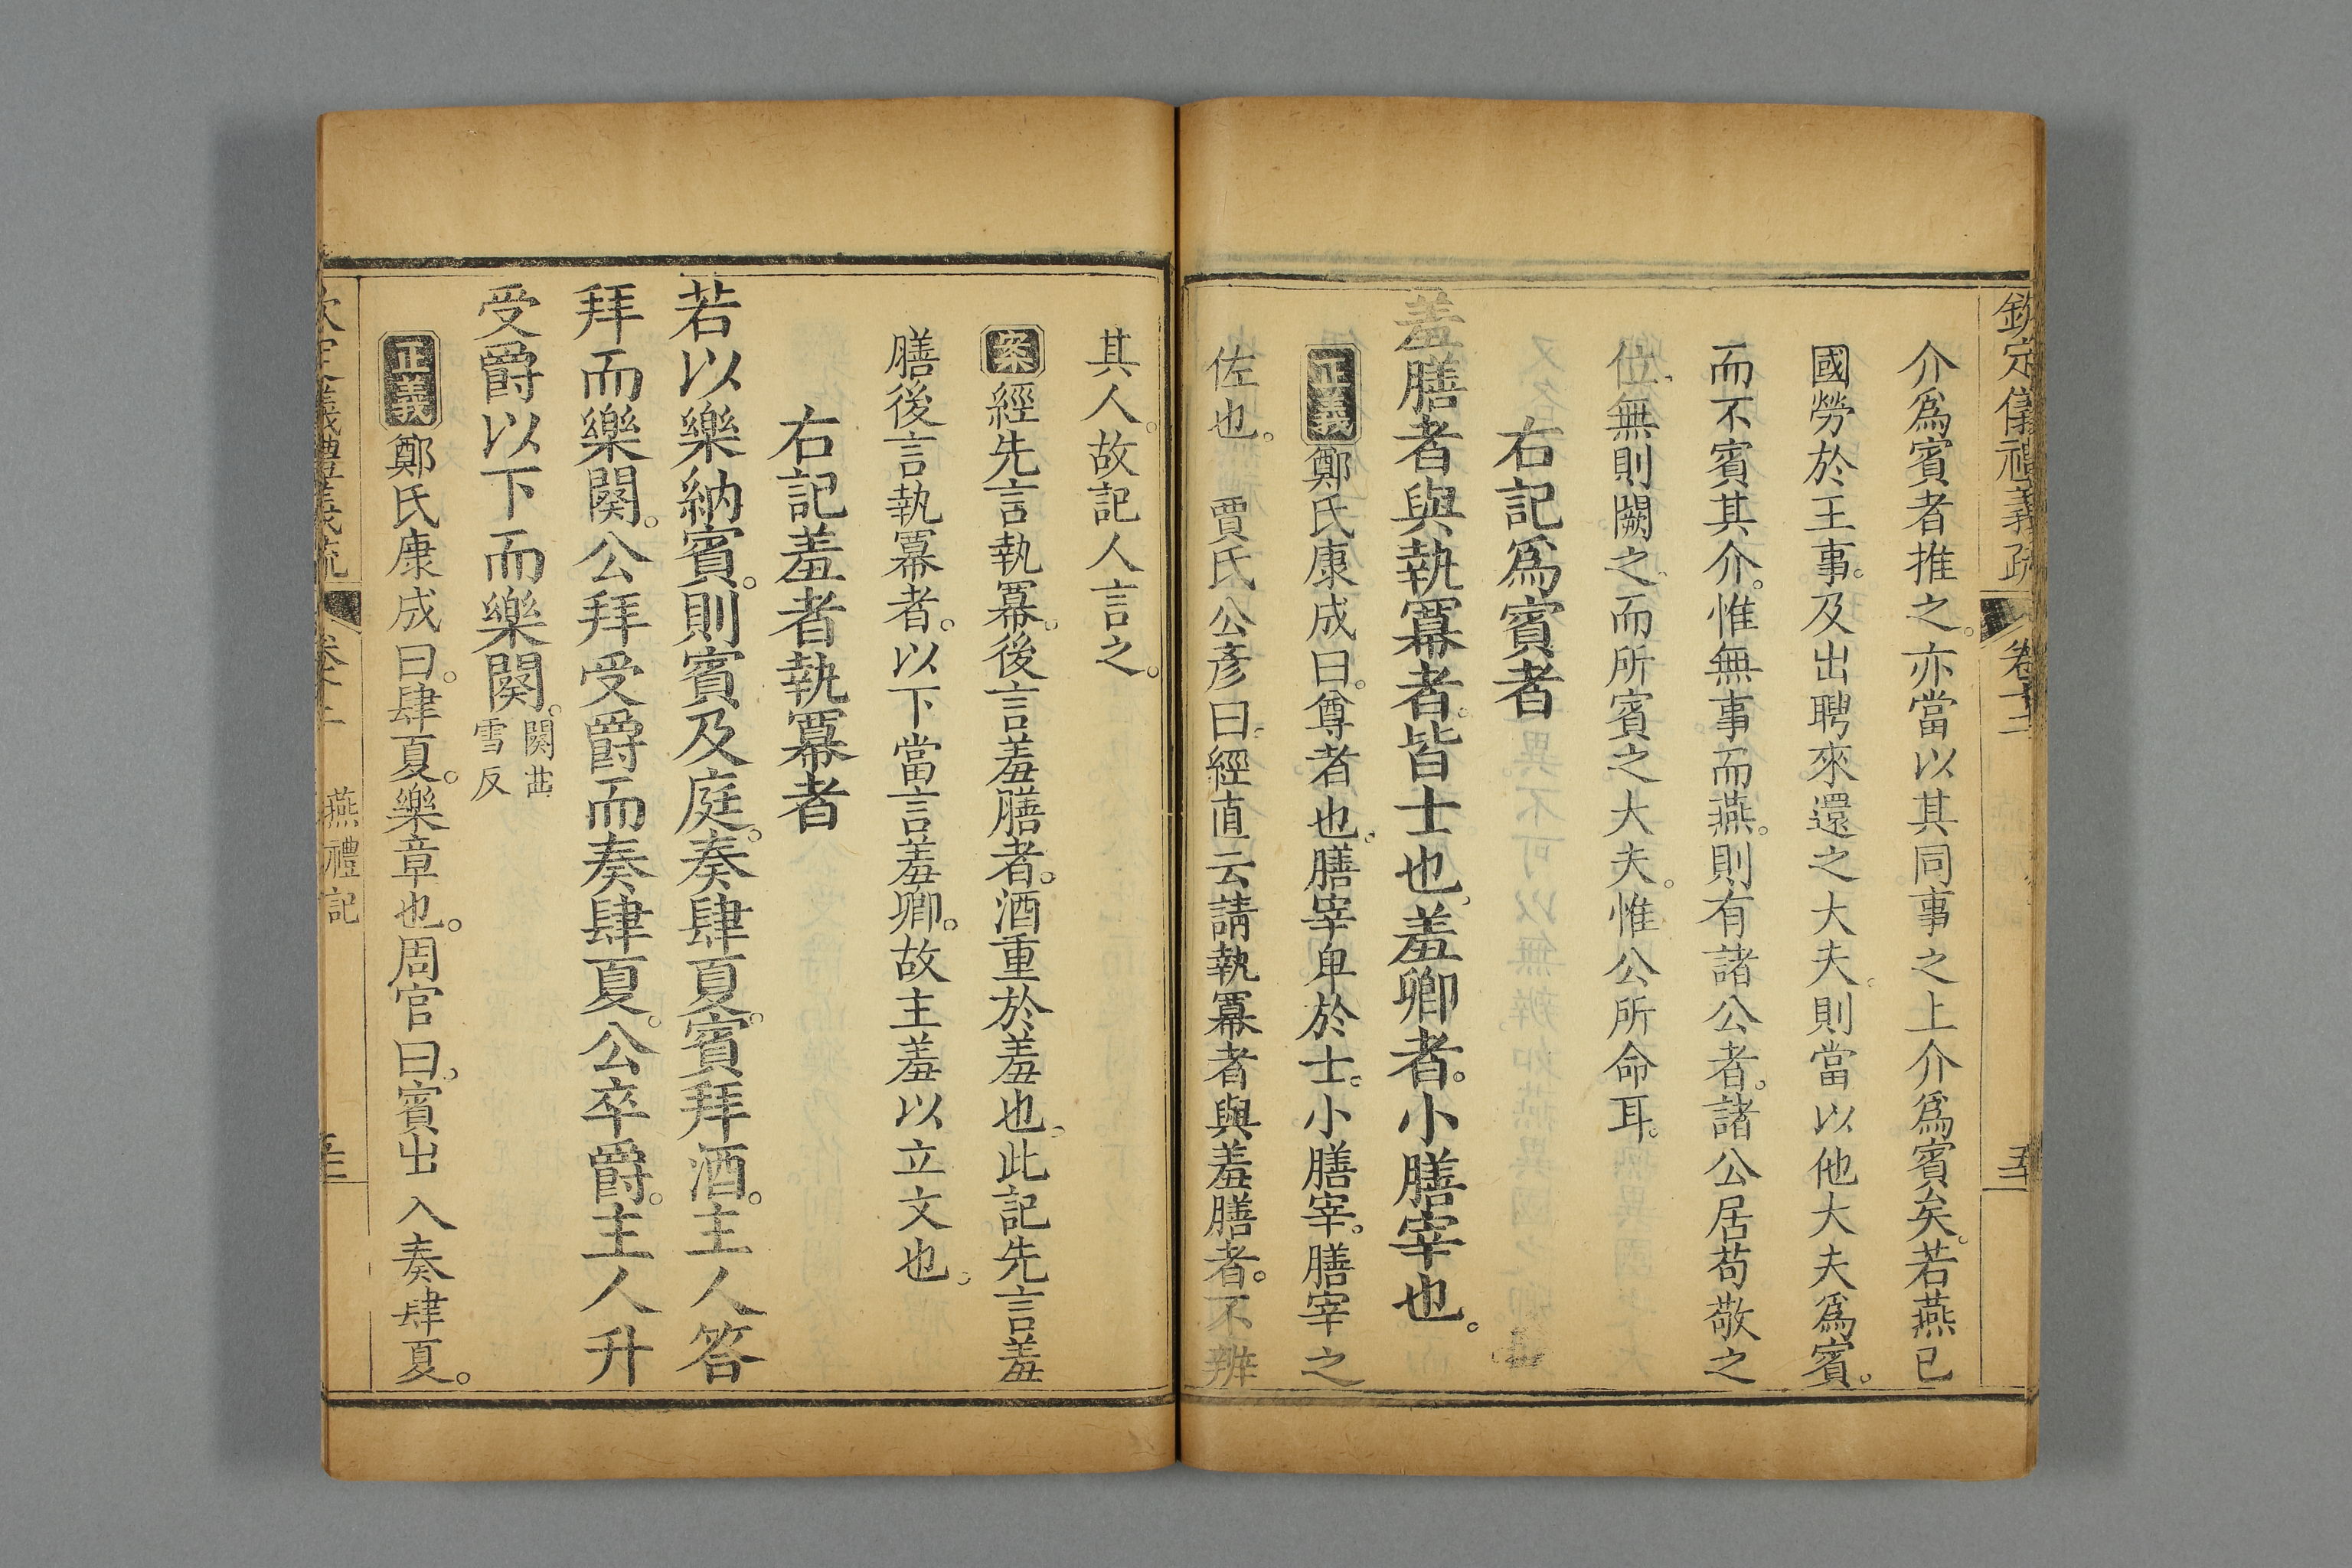 欽定儀禮義疏 卷十二
介爲賓者推之。亦當以其同事之上介爲賓矣。若燕已
國勞於王事。及出聘來還之大夫。則當以他大夫爲賓。
而不賓其介。惟無事而燕。則有諸公者。諸公居苟敬之
位。無則闕之。而所賓之大夫。惟公所命耳。
右記爲賓者
羞膳者與執冪者。皆士也。羞卿者。小膳宰也。
正義鄭氏康成曰。尊者也。膳宰卑於士。小膳宰。膳宰之
佐也。 賈氏公彦曰。經直云請執冪者與羞膳者。不辨
其人。故記人言之。
案經先言執冪。後言羞膳者。酒重於羞也。此記先言羞
膳後言執冪者。以下當言羞卿。故主羞以立文也。
右記羞者執冪者
若以樂納賓。則賓及庭。奏肆夏。賓拜酒。主人答
拜而樂闋。公拜受爵而奏肆夏。公卒爵。主人升
受爵以下而樂闋。闋苦雪反
正義鄭氏康成曰。肆夏。樂章也。周官曰。賓出入奏肆夏。
儀禮義疏 卷十二 燕禮記